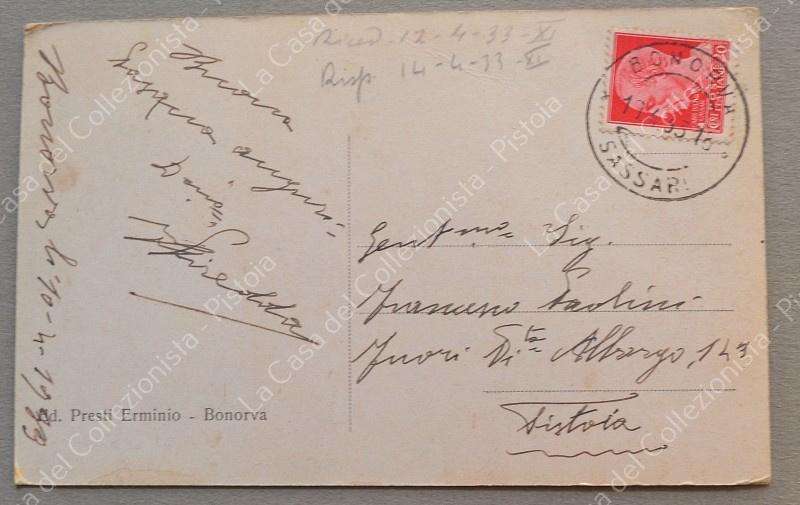 Riced. 12-4-33-XI
Risp. 14-4-33-XI
BONORVA
SASSARI
Bonorva lì 10-4-1933
Buona
Pasqua auguri
Gent.mo Sig.
Francesco Paolini
Fuori P.ta
Pistoia
Ed. Presti Erminio - Bonorva
La Casa del Collezionista - Pistoia